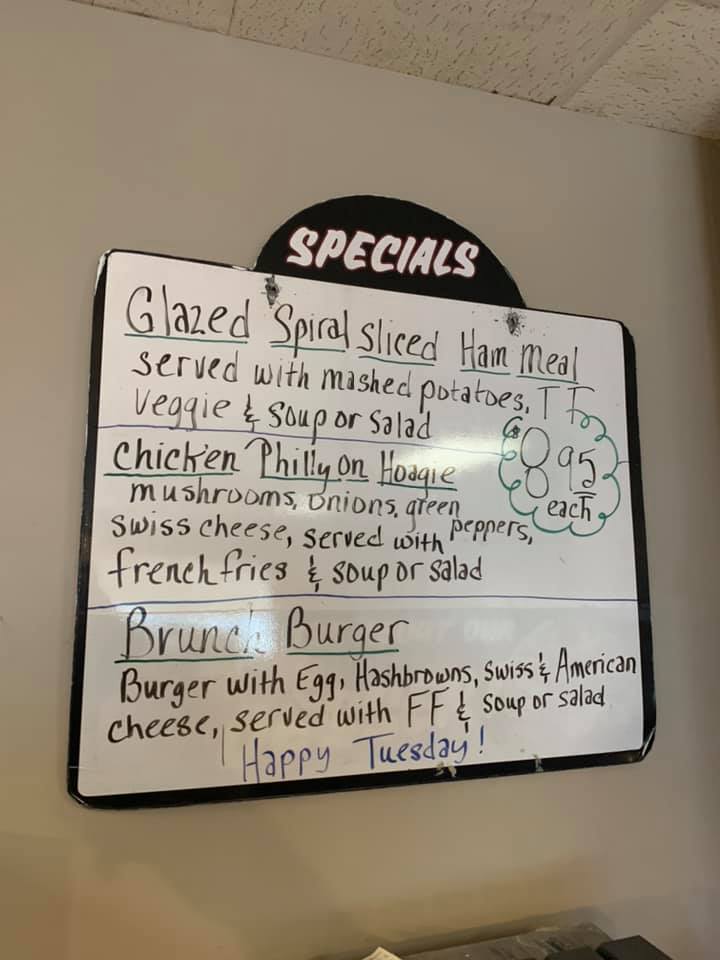 SPECIALS
Glazed Spiral Sliced Ham Meal
served with mashed potatoes, TF
Veggie & Soup or Salad
$8.95
each
Chicken Philly on Hoagie
mushrooms, onions, green peppers,
swiss cheese, served with
french fries & soup or salad
Brunch Burger
Burger with Egg, Hashbrowns, swiss & American
cheese, served with FF & soup or salad
Happy Tuesday!